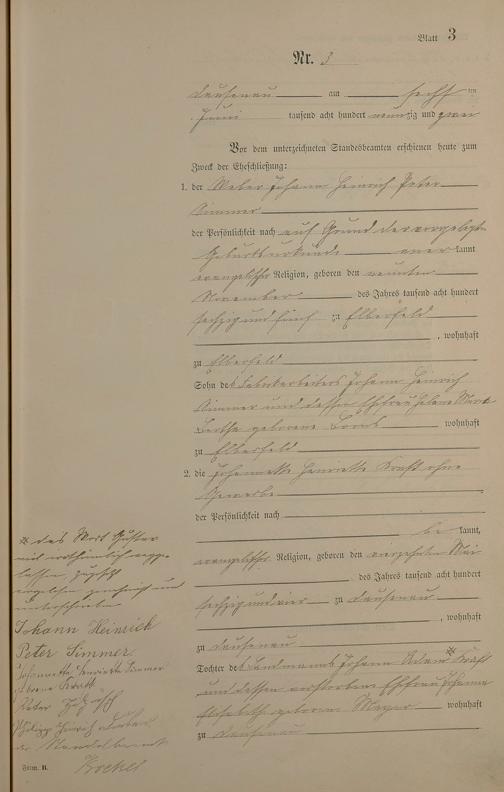 Blatt 3
Nr. 3
Dausenau am sechsten
Juni tausend acht hundert neunzig und zwei
Vor dem unterzeichneten Standesbeamten erschienen heute zum
Zweck der Eheschließung:
1. der Weber Johann Heinrich Peter
Simmer
der Persönlichkeit nach auf Grund der vorgelegten
Geburtsurkunde anerkannt
evangelischer Religion, geboren den neunten
November des Jahres tausend acht hundert
sechzig und fünf zu Elberfeld
, wohnhaft
zu Elberfeld
Sohn des Fabrikarbeiters Johann Heinrich
Simmer und dessen Ehefrau Helene Maria
Bertha geborene wohnhaft
zu Elberfeld
2. die Johannette Henriette Kraft ohne
Gewerbe
der Persönlichkeit nach
bekannt,
evangelischer Religion, geboren den vierzehnten Mai
des Jahres tausend acht hundert
sechzig und vier zu Dausenau
, wohnhaft
zu Dausenau
Tochter des Landmanns Johann Adam Kraft
und dessen verstorbene Ehefrau Johanna
Elisabeth geborene Mager wohnhaft
zu Dausenau
das Wort
und
Johann Heinrich
Peter Simmer
Johannette Henriette Simmer
geborene Kraft
Peter
Philipp Heinrich
Der Standesbeamte
Form. B.